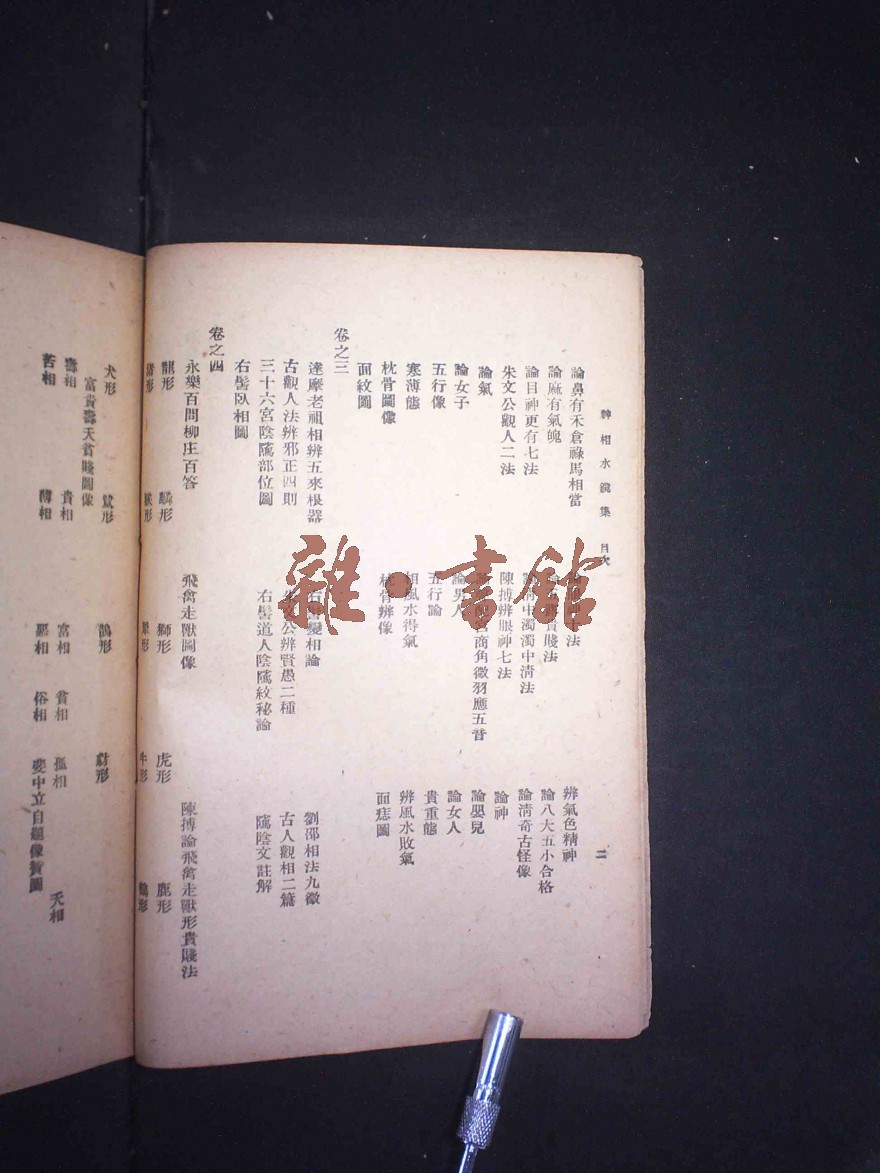 神相水鏡集 目次 二
論鼻有禾倉祿馬相當 法 辨氣色精神
論麻有氣魄 貴賤法 論八大五小合格
論目神更有七法 清中濁濁中清法 論清奇古怪像
朱文公觀人二法 陳摶辨眼神七法 論神
論氣 宮商角徵羽應五音 論嬰兒
論女子 論男人 論女人
五行像 五行論 貴重態
寒薄態 相風水得氣 辨風水敗氣
枕骨圖像 枕骨辨像 面痣圖
面紋圖
卷之三
達摩老祖相辨五來根器 右髻變相論 劉邵相法九徵
古觀人法辨邪正四則 朱文公辨賢愚二種 古人觀相二篇
三十六宮陰騭部位圖 右髻道人陰騭紋秘論 騭陰文註解
右髻臥相圖
卷之四
永樂百問柳庄百答 飛禽走獸圖像 陳摶論飛禽走獸形貴賤法
龍形 麟形 獅形 虎形 鹿形
猪形 猴形 形 牛形 鶴形
犬形 形 鵲形 豺形
富貴壽夭貧賤圖像
壽相 貴相 富相 貧相 孤相 夭相
苦相 薄相 惡相 俗相 中立自題像贊圖
雜·書館